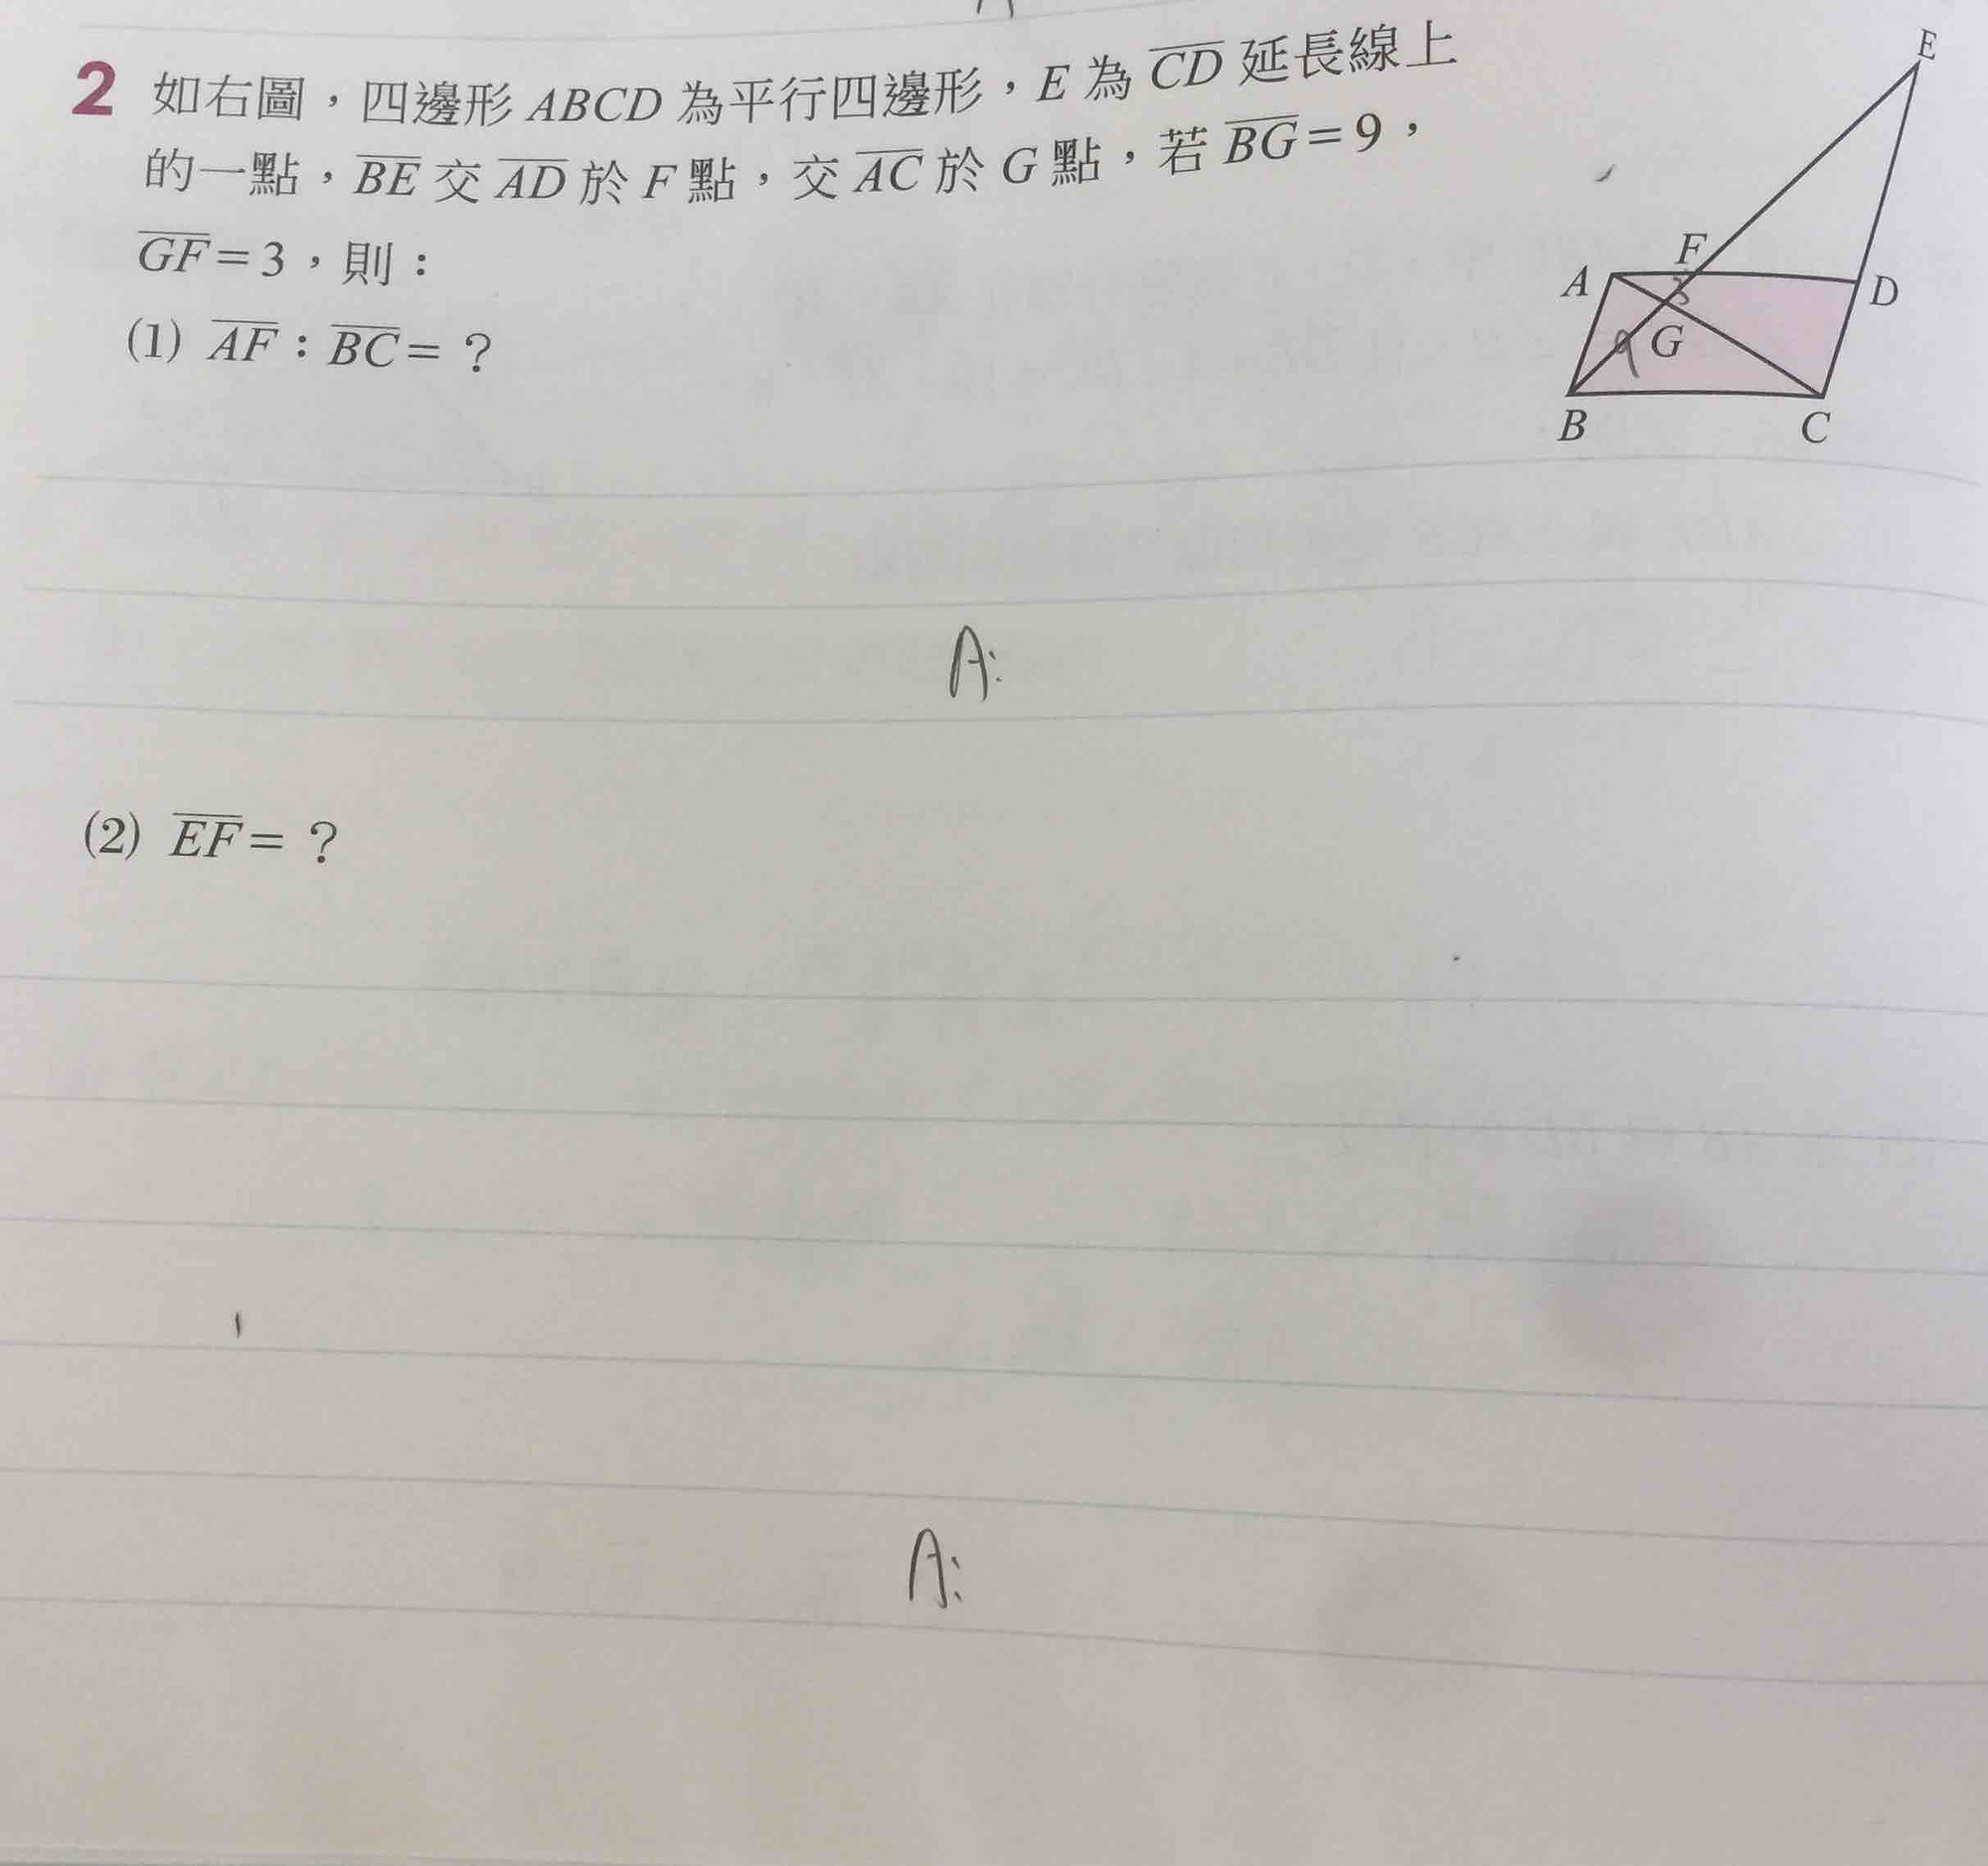 2 如右圖，四邊形 ABCD 為平行四邊形，E 為 CD 延長線上
的一點，BE 交 AD 於 F 點，交 AC 於 G 點，若 BG=9，
GF=3，則：
(1) AF：BC=？
E
F
A
D
3
9
G
B
C
A:
(2) EF=？
A: